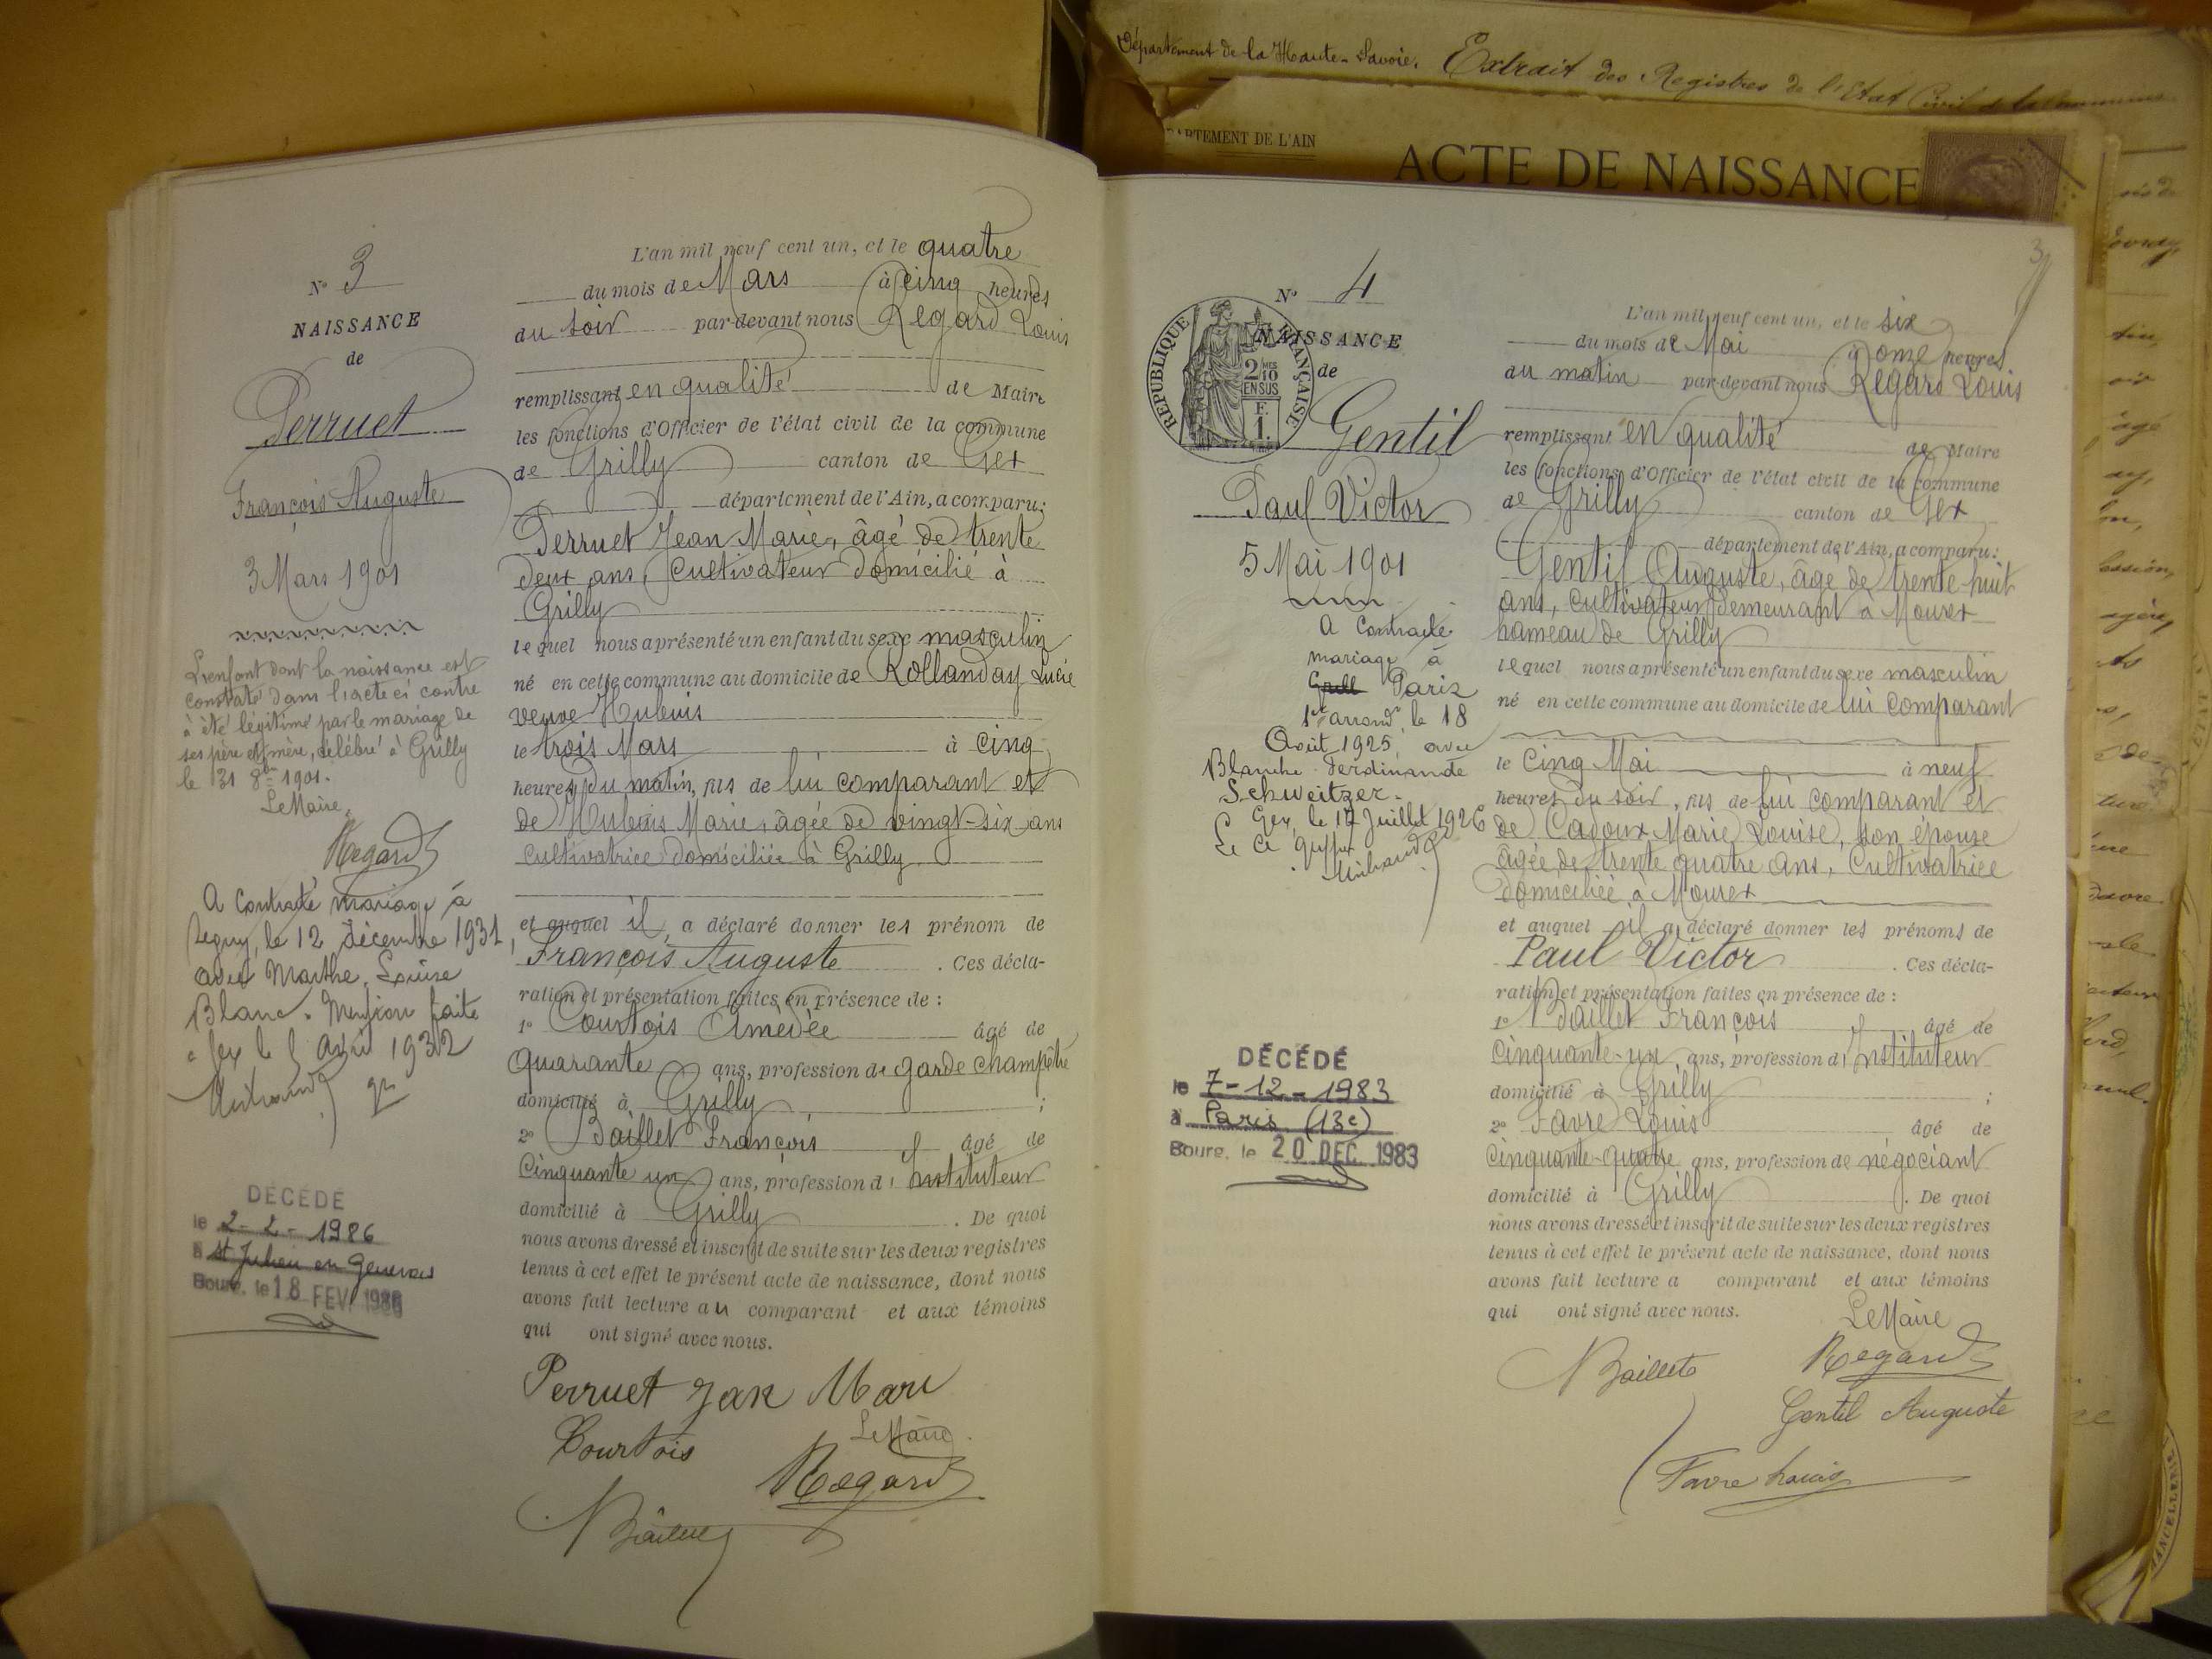 Département de la Haute-Savoie. Extrait des Registres de l'Etat Civil de la commune
PARTEMENT DE L'AIN
ACTE DE NAISSANCE
N° 3
NAISSANCE
de
Perruet
François Auguste
3 Mars 1901
L'enfant dont la naissance est
constaté dans l'acte ci contre
à été légitimé par le mariage de
ses père et mère, célébré à Grilly
le 31 8bre 1901.
Le Maire,
Regard
A contracté mariage à
le 12 décembre 1931,
avec Marthe Louise
Blanc. Mention faite
à Gex le 5 avril 1932
DÉCÉDÉ
le 2-2-1986
à St Julien en Genevois
Bourg, le 18 FEV. 1986
L'an mil neuf cent un, et le quatre
du mois de Mars à cinq heures
du soir par-devant nous Regard Louis
remplissant en qualité de Maire
les fonctions d'Officier de l'état civil de la commune
de Grilly canton de Gex
département de l'Ain, a comparu:
Perruet Jean Marie, âgé de trente
deux ans, Cultivateur domicilié à
Grilly
lequel nous a présenté un enfant du sexe masculin
né en cette commune au domicile de Rollanday Lucie
veuve Hubuis
le trois Mars à cinq
heures du matin, fils de lui comparant et
de Hubuis Marie, âgée de vingt-six ans
cultivatrice domiciliée à Grilly
et auquel il a déclaré donner les prénom de
François Auguste. Ces décla-
ration et présentation faites en présence de :
1° Courtois Amédée âgé de
quarante ans, profession de garde champêtre
domicilié à Grilly ;
2° Baillet François âgé de
Cinquante un ans, profession d'Instituteur
domicilié à Grilly. De quoi
nous avons dressé et inscrit de suite sur les deux registres
tenus à cet effet le présent acte de naissance, dont nous
avons fait lecture au comparant et aux témoins
qui ont signé avec nous.
Perruet Jan Mari
Courtois Le Maire
Regard
Baillet
3
N° 4
NAISSANCE
de
RÉPUBLIQUE FRANÇAISE
2 MES
10
EN SUS
F.
1.
Gentil
Paul Victor
5 Mai 1901
A contracté
mariage à
Grill Paris
1er arrondt le 18
Août 1925, avec
Blanche Ferdinande
Schweitzer.
Gex, le 17 Juillet 1926
Le Cis greffier
DÉCÉDÉ
le 7-12-1983
à Paris (13e)
Bourg, le 20 DEC. 1983
L'an mil neuf cent un, et le six
du mois de Mai à onze heures
du matin par-devant nous Regard Louis
remplissant en qualité de Maire
les fonctions d'Officier de l'état civil de la commune
de Grilly canton de Gex
département de l'Ain, a comparu:
Gentil Auguste, âgé de trente-huit
ans, cultivateur demeurant à Mourex
hameau de Grilly
lequel nous a présenté un enfant du sexe masculin
né en cette commune au domicile de lui comparant
le Cinq Mai à neuf
heures du soir, fils de lui comparant et
de Cadoux Marie Louise, son épouse
âgée de trente quatre ans, Cultivatrice
domiciliée à Mourex
et auquel il a déclaré donner les prénoms de
Paul Victor. Ces décla-
ration et présentation faites en présence de :
1° Baillet François âgé de
Cinquante-un ans, profession d'Instituteur
domicilié à Grilly ;
2° Favre Louis âgé de
Cinquante-quatre ans, profession de négociant
domicilié à Grilly. De quoi
nous avons dressé et inscrit de suite sur les deux registres
tenus à cet effet le présent acte de naissance, dont nous
avons fait lecture a comparant et aux témoins
qui ont signé avec nous.
Le Maire
Baillet Regard
Gentil Auguste
Favre Louis